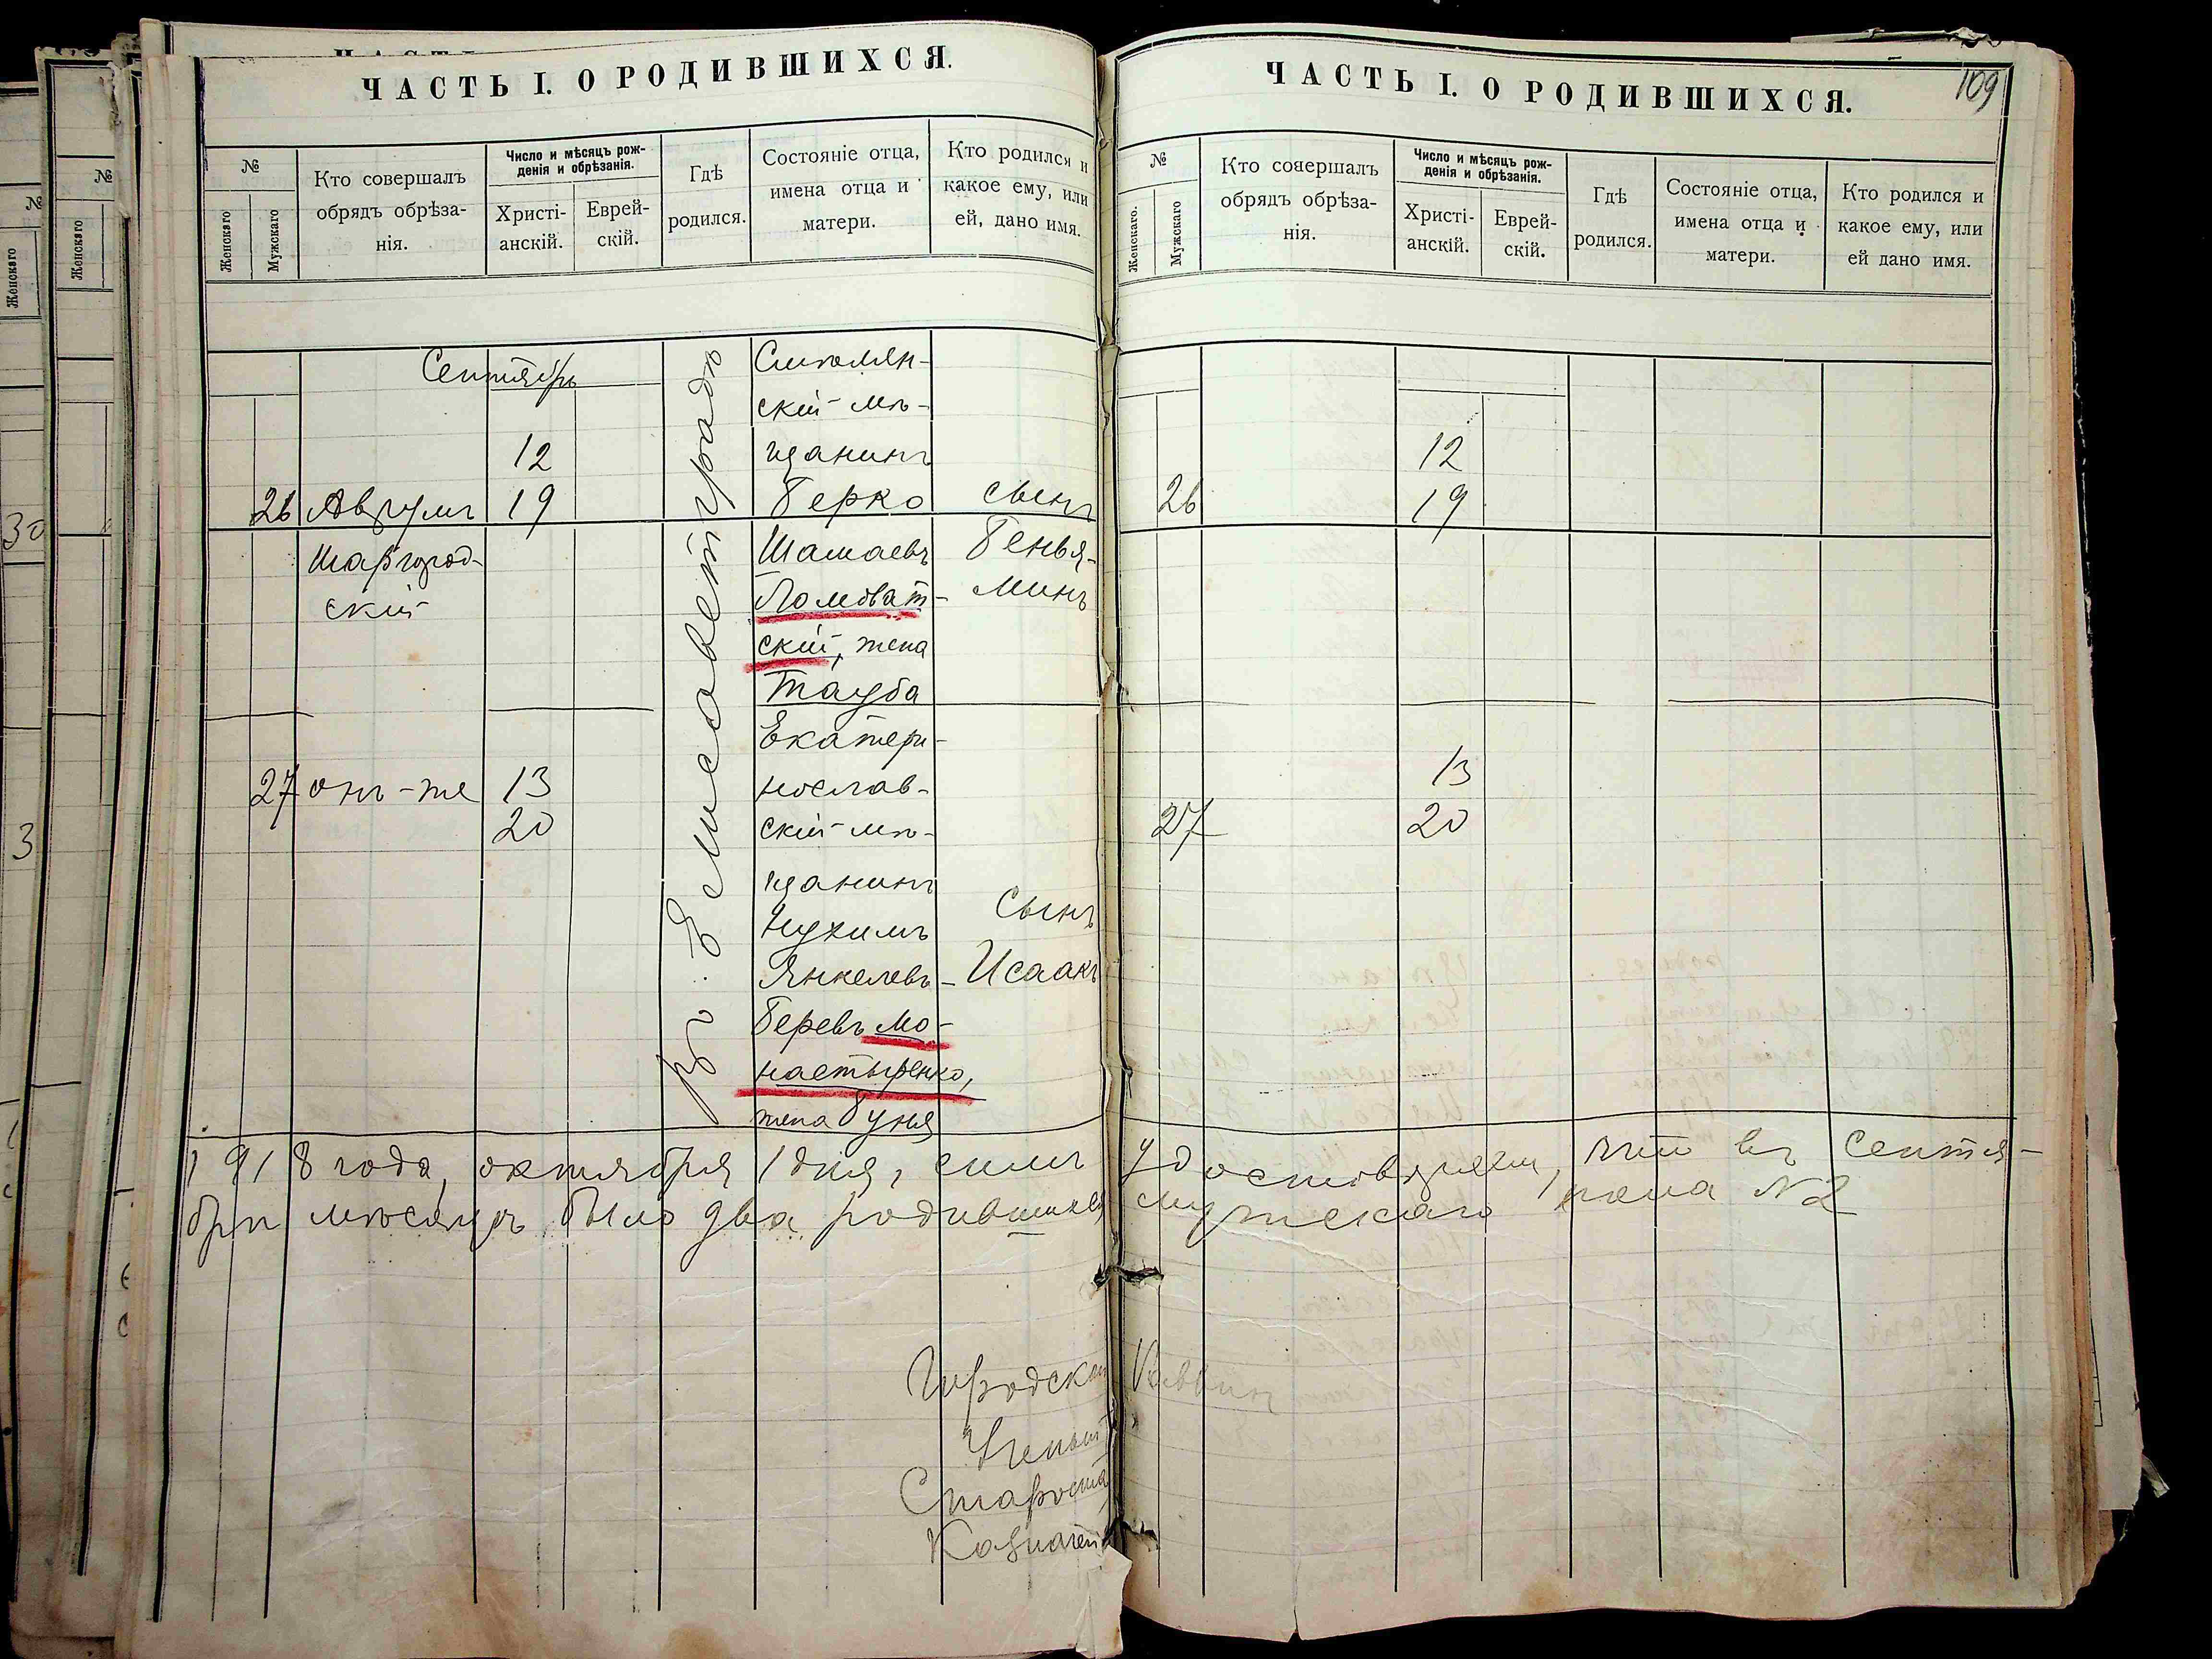 ЧАСТЬ I. О РОДИВШИХСЯ.
№
Женскаго
Мужскаго
Кто совершалъ
обрядъ обрѣза-
нія.
Число и мѣсяцъ рож-
денія и обрѣзанія.
Христі-
анскій.
Еврей-
скій.
Гдѣ
родился.
Состояніе отца,
имена отца и
матери.
Кто родился и
какое ему, или
ей, дано имя.
Сентябрь
26
Аврумъ
Шаргород-
скій
12
19
въ Елисаветградѣ
мѣ-
щанинъ
Берко
Шамаевъ
Ломоват-
скій, жена
Тауба
сынъ
Бенья-
минъ
27
онъ-же
13
20
Екатери-
нослав-
скій мѣ-
щанинъ
Нухимъ
Янкелевъ-
Беревъ Мо-
настыренко,
жена Буня
Сынъ
Исаакъ
ЧАСТЬ I. О РОДИВШИХСЯ.
109
№
Женскаго.
Мужскаго
Кто совершалъ
обрядъ обрѣза-
нія.
Число и мѣсяцъ рож-
денія и обрѣзанія.
Христі-
анскій.
Еврей-
скій.
Гдѣ
родился.
Состояніе отца,
имена отца и
матери.
Кто родился и
какое ему, или
ей дано имя.
26
12
19
27
13
20
1918 года, октября 1 дня, симъ удостовѣряемъ, что въ Сентя-
брѣ мѣсяцѣ было два родившихся мужскаго пола №2
Городской Раввинъ
Ученый
Староста
Казначей
№
Женскаго
№
Женскаго
30
3